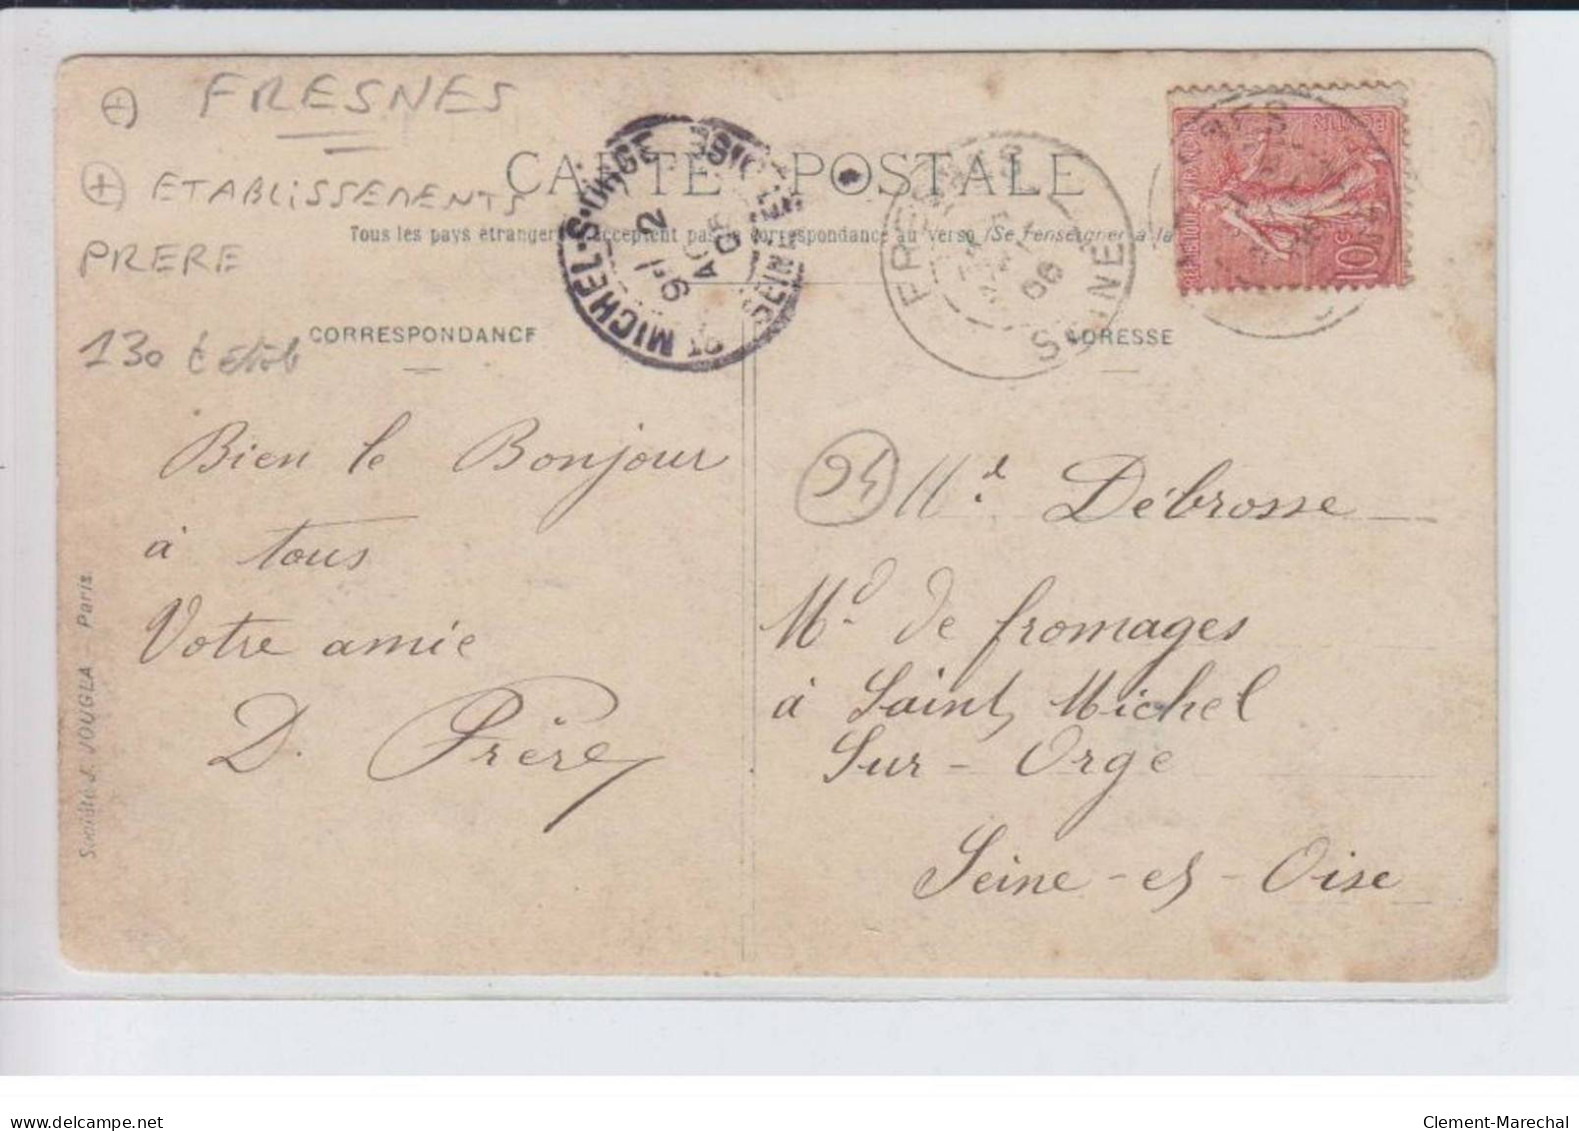 FRESNES
ETABLISSEMENTS
PRERE
CARTE POSTALE
Tous les pays étrangers n'acceptent pas la correspondance au verso (Se renseigner à la
ST MICHEL-S-ORGE
SEINE-ET-OISE
2
AO
06
FRESNES
SEINE
06
RÉPUBLIQUE FRANÇAISE
POSTES
10c
130 €
CORRESPONDANCE
ADRESSE
Bien le Bonjour
à tous
Votre amie
D. Frère
94
Md. Débrosse
Md. de fromages
à Saint Michel
Sur-Orge
Seine-et-Oise
Société J. JOUGLA - Paris
delcampe.net
Clement-Marechal